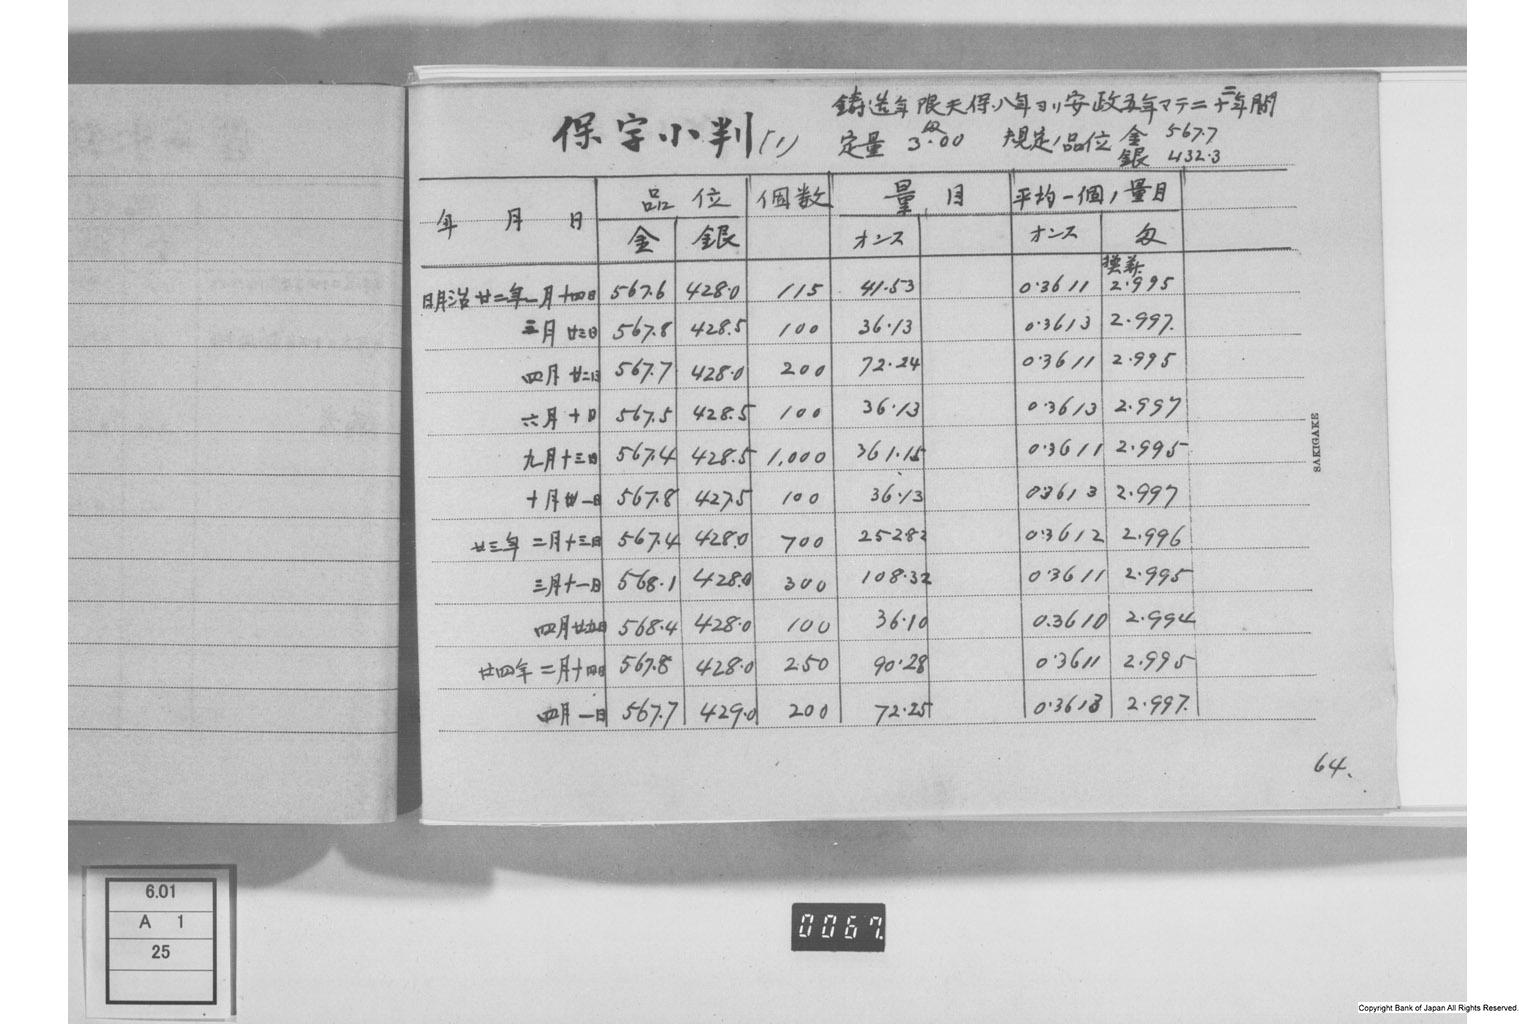 保字小判(1)
鋳造年限天保八年ヨリ安政五年マテ二十二年間
定量 3.00匁 規定ノ品位 金 567.7
銀 432.3
年 月 日 品位 個数 量目 平均一個ノ量目
金 銀 オンス オンス 匁
明治廿二年一月十四日 567.6 428.0 115 41.53 0.3611 2.995
三月廿三日 567.8 428.5 100 36.13 0.3613 2.997
四月廿二日 567.7 428.0 200 72.24 0.3611 2.995
六月十日 567.5 428.5 100 36.13 0.3613 2.997
九月十三日 567.4 428.5 1,000 361.15 0.3611 2.995
十月廿一日 567.8 427.5 100 36.13 0.3613 2.997
廿三年 二月十三日 567.4 428.0 700 252.82 0.3612 2.996
三月十一日 568.1 428.0 300 108.32 0.3611 2.995
四月廿九日 568.4 428.0 100 36.10 0.3610 2.994
廿四年 二月十四日 567.8 428.0 250 90.28 0.3611 2.995
四月一日 567.7 429.0 200 72.25 0.3613 2.997
SAKIGAKE
64.
6.01
A 1
25
0067.
Copyright Bank of Japan All Rights Reserved.